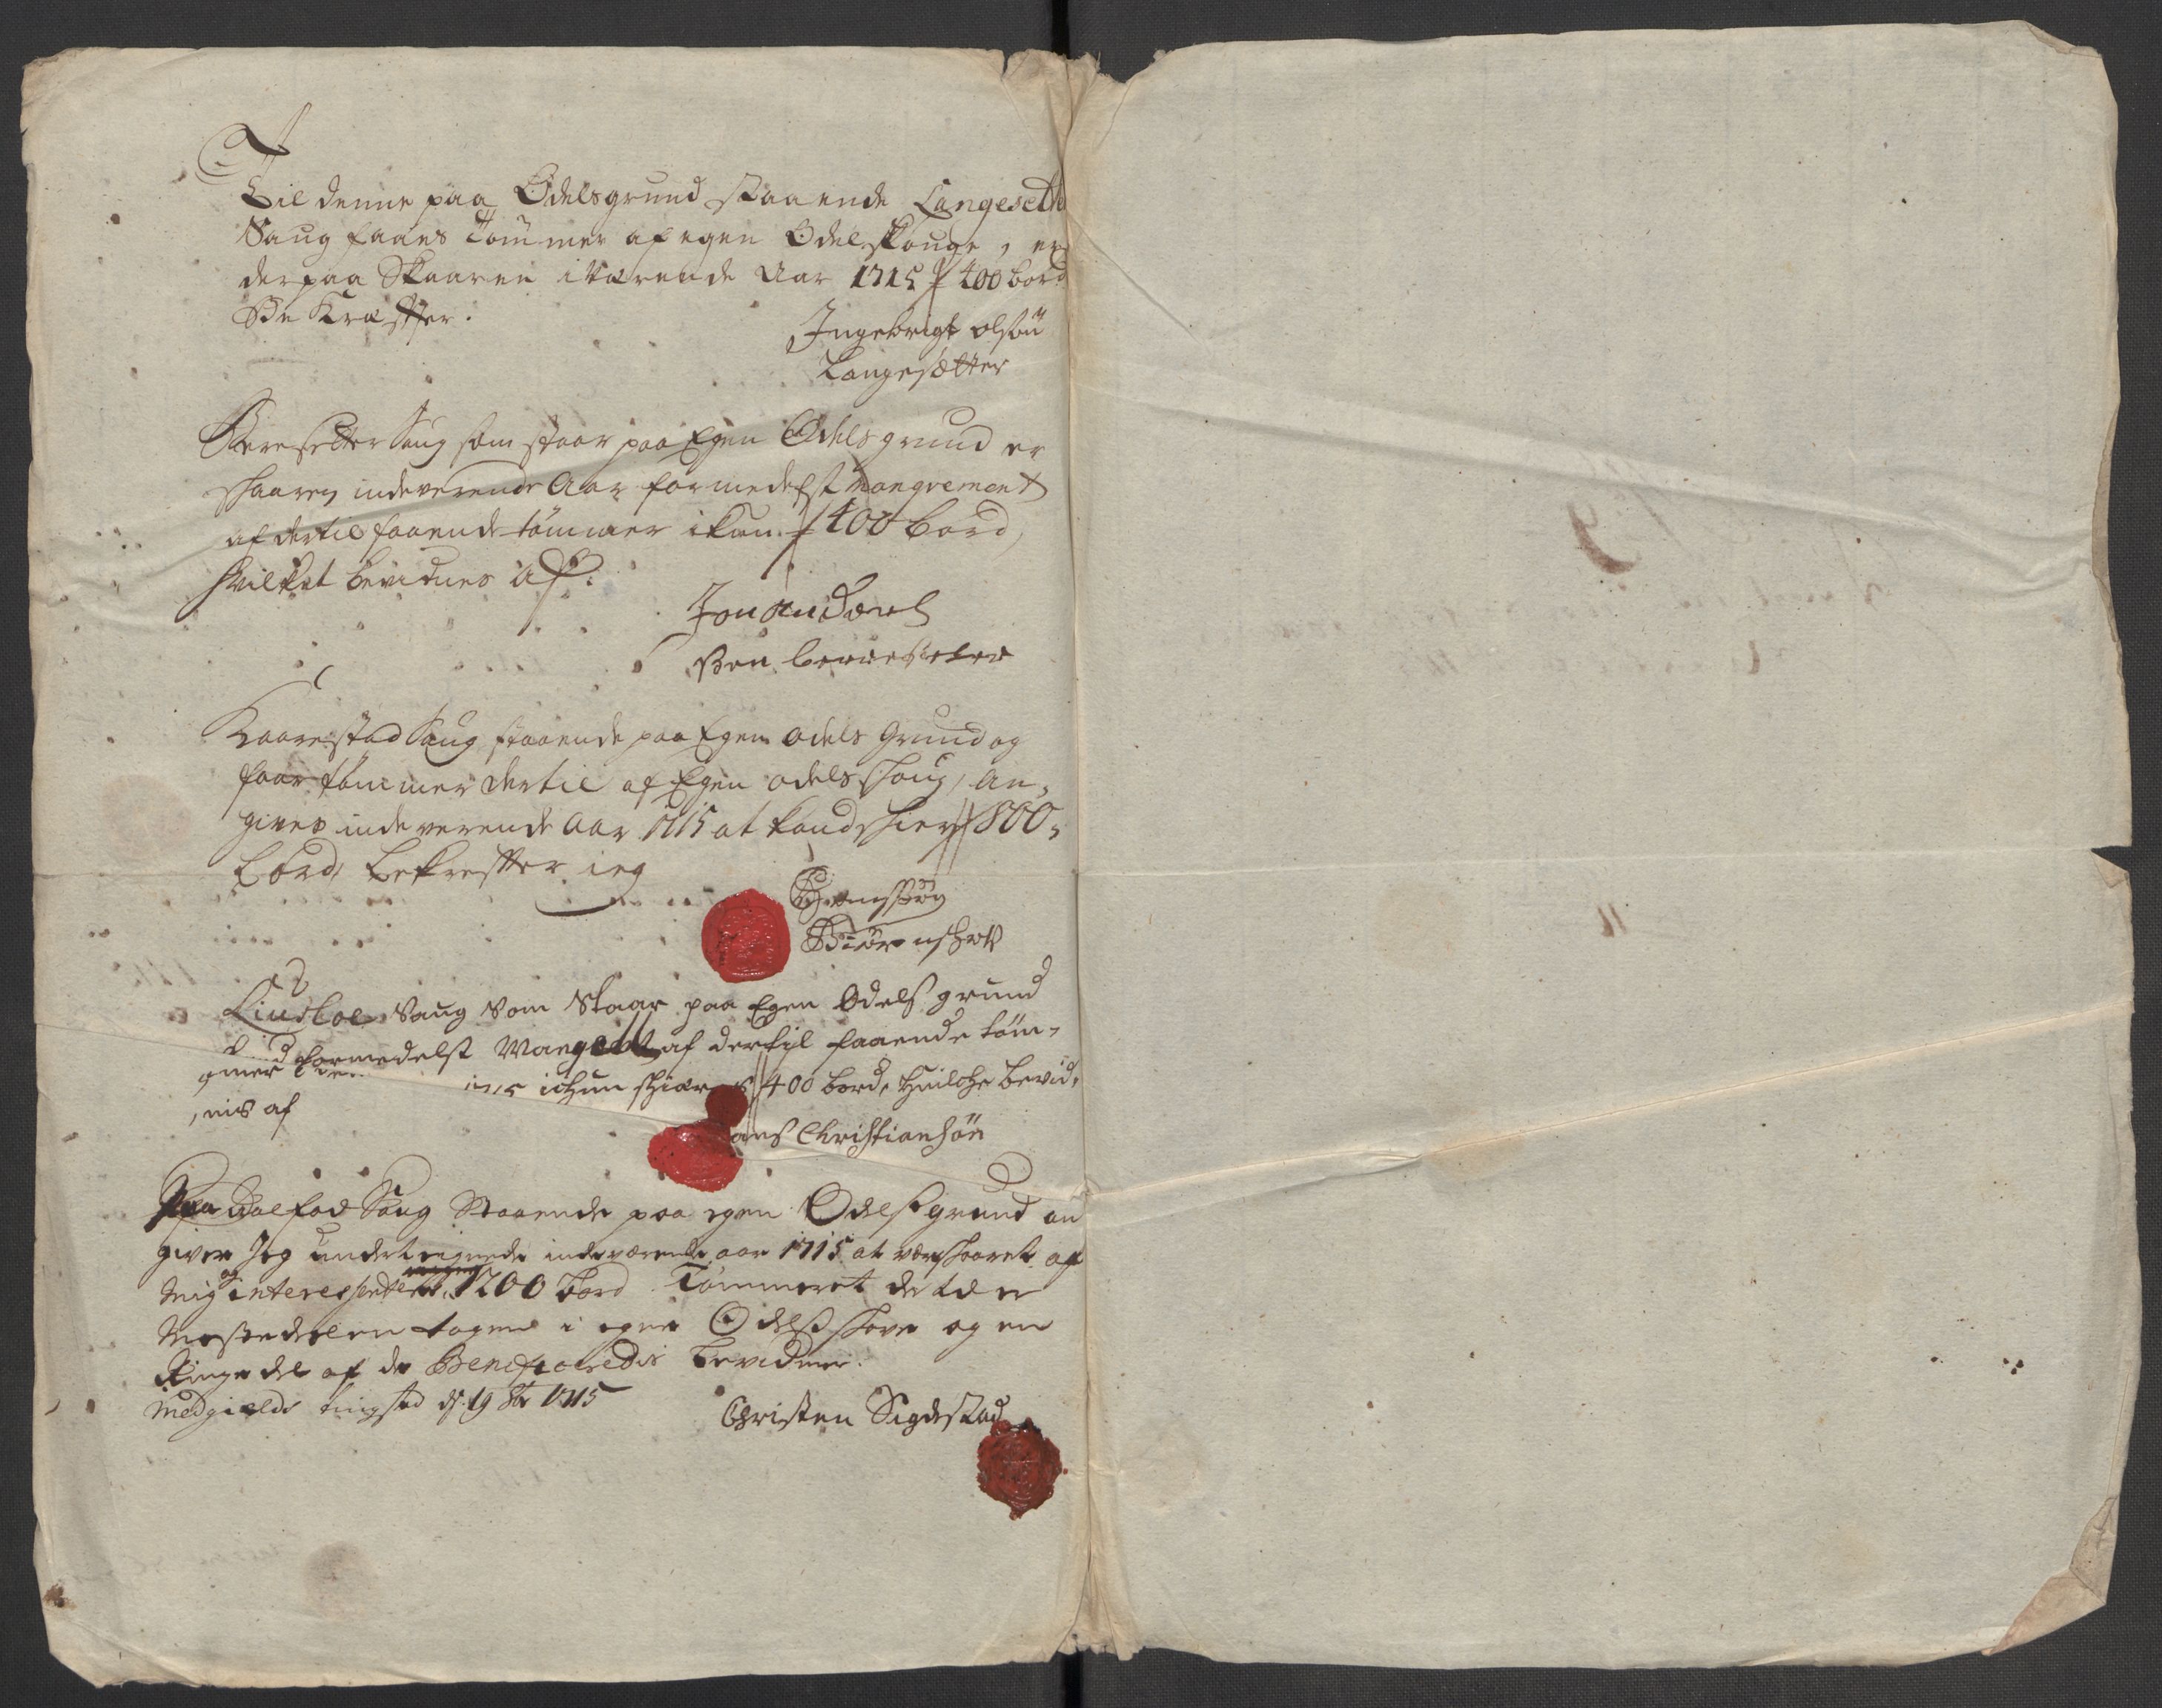 Til denne paa Odelsgrund staaende Langesetter
Saug faaes Tømmer af egen Odelskouge, er
derpaa Skaaren i Værende Aar 1715 400 bord
Be Kræffter.
Ingebrigt olsøn
Langesætter
Berresetter Saug som staar paa Egen Odels grund er
skaaren indeverende Aar formedelst mangrement
af dertil faaende tømmer ikun 400 bord,
hvilket bevidnes af.
Jon Anders
Sen berresetter
Kaarestad Saug staaende paa Egen odels Grund og
faar tømmer dertil af Egen odels skoug, an,
gives indeverende Aar 1715 at kand skier 800,
bord, bekreffter ieg
Biørnskov
Lindsloe Saug Som Staar paa Egen Odels grund
formedelst Mangel af dertil faaende tøm,
mer 1715 ickun skiæres 400 bord, huilche bevid,
,nis af
ans Christiansøn
Paa Saug Staaende paa egen Odelsgrund an
giver Jeg undertegnede indeværende aar 1715 at være skaaret af
mig og interessenter 1200 bord. Tømmeret dertil er
meste delen tagen i egen Odelsskove og en
Ringe del af de Beneficeredis bevidner.
tingsted d. 19 8br 1715
Christen Sigdestad